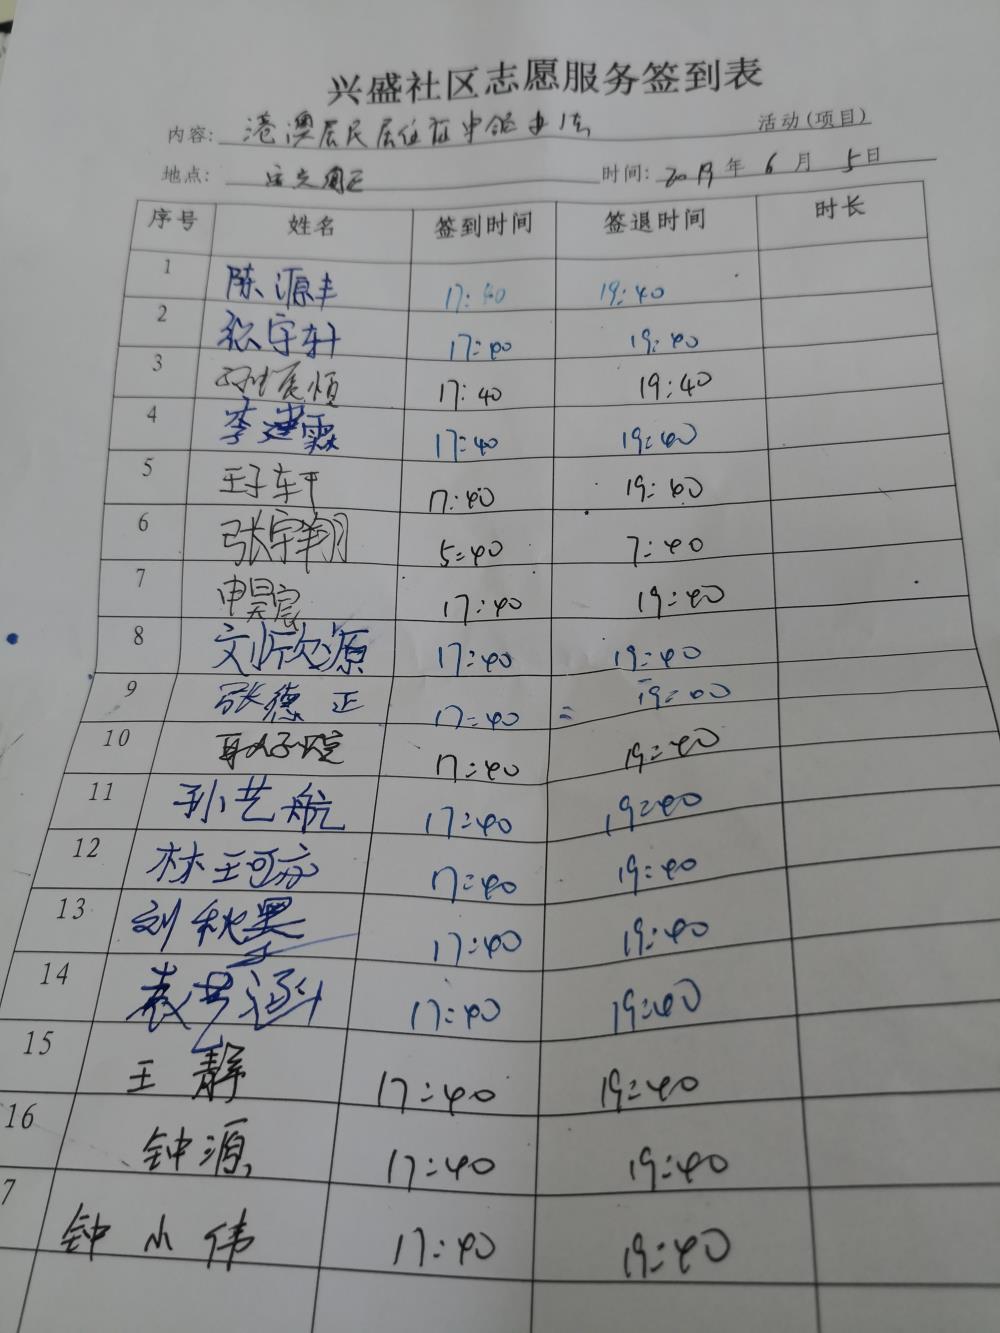 兴盛社区志愿服务签到表
内容: 港澳居民居住证申领办法 活动(项目)
地点: 时间: 2019年 6月 5日
序号 姓名 签到时间 签退时间 时长
1 陈源丰 17:40 19:40
2 张宇轩 17:40 19:40
3 17:40 19:40
4 李建霖 17:40 19:40
5 王子轩 17:40 19:40
6 张宇翔 5:40 7:40
7 申昊宸 17:40 19:40
8 刘欣源 17:40 19:40
9 张德正 17:40 19:40
10 17:40 19:40
11 孙艺航 17:40 19:40
12 林王可 17:40 19:40
13 刘秋 17:40 19:40
14 袁艺涵 17:40 19:40
15 王静 17:40 19:40
16 钟源 17:40 19:40
7 钟小伟 17:40 19:40